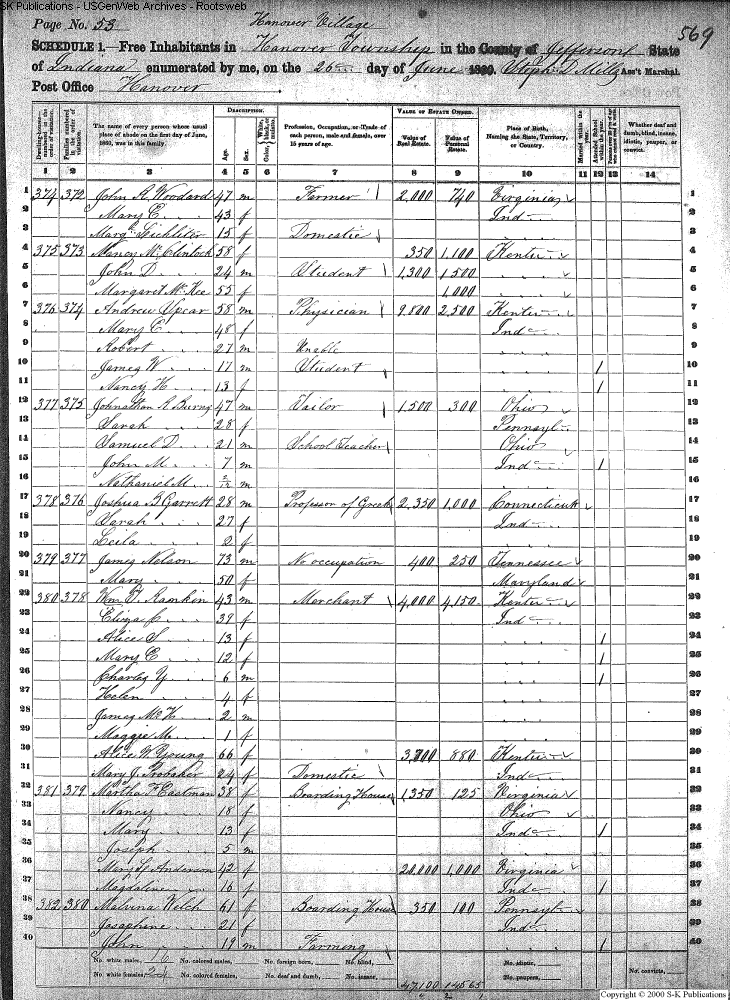 S-K Publications - USGenWeb Archives - Rootsweb
Page No. 53
Hanover Village
569
SCHEDULE 1.—Free Inhabitants in Hanover Township in the County of Jefferson State
of Indiana enumerated by me, on the 26 day of June 1860. Steph D. Mills Ass't Marshal.
Post Office Hanover
DESCRIPTION. VALUE OF ESTATE OWNED.
Dwelling-houses—numbered in the order of visitation. Families numbered in the order of visitation. The name of every person whose usual place of abode on the first day of June, 1860, was in this family. Age. Sex. Color, White, black, or mulatto. Profession, Occupation, or Trade of each person, male and female, over 15 years of age. Value of Real Estate. Value of Personal Estate. Place of Birth, Naming the State, Territory, or Country. Married within the year. Attended School within the year. Whether deaf and dumb, blind, insane, idiotic, pauper, or convict.
1 2 3 4 5 6 7 8 9 10 11 12 13 14
1 374 372 John A. Woodard 47 m Farmer 2,000 740 Virginia 1
2 Mary E. 43 f Ind 2
3 Marg. 15 f Domestic 3
4 375 373 Nancy McClintock 58 f 350 1,100 Kentu 4
5 John D 24 m Student 1,300 1500 5
6 Margaret McKee 55 f 1,000 6
7 376 374 Andrew Spear 58 m Physician 9,800 2,500 Kentu 7
8 Mary C. 48 f Ind 8
9 Robert 27 m Unable 9
10 James W 17 m Student 1 10
11 Nancy H 13 f 1 11
12 377 375 Johnathan R Burns 47 m Tailor 1,500 300 Ohio 12
13 Sarah 28 f Pennsyl 13
14 Samuel D 21 m School Teacher Ohio 14
15 John M. 7 m Ind 1 15
16 Nathaniel M 2/12 m 16
17 378 376 Joshua B Garrett 28 m Professor of Greek 2,350 1,000 Connecticutt 17
18 Sarah 27 f Ind 18
19 Leila 2 f 19
20 379 377 James Nelson 73 m No occupation 400 250 Tennessee 20
21 Mary 50 f Maryland 21
22 380 378 Wm. H. Rankin 43 m Merchant 4,000 4,150 Kentu 22
23 Eliza C. 39 f Ind 23
24 Alice S. 13 f 1 24
25 Mary E 12 f 1 25
26 Charles Y. 6 m 1 26
27 Helen 4 f 27
28 James McK 2 m 28
29 Maggie M. 1 f 29
30 Alice W. Young 66 f 3,700 880 Kentu 30
31 Mary J. Probaker 24 f Domestic Ind 31
32 381 379 Martha F Eastman 38 f Boarding House 1,350 125 Virginia 32
33 Nancy 18 f Ohio 33
34 Mary 13 f Ind 1 34
35 Joseph 5 m 35
36 Mary Anderson 42 f 20,000 1,000 Virginia 36
37 Magdalene 16 f Ind 1 37
38 382 380 Malvina Welch 61 f Boarding House 350 100 Pennsyl 38
39 Josephine 21 f Ind 39
40 John 19 m Farming 1 40
No. white males, 16 No. colored males, No. foreign born, No. blind, No. idiotic,
No. white females, 24 No. colored females, No. deaf and dumb, No. insane, No. paupers, No. convicts,
47,100 14565
Copyright © 2000 S-K Publications